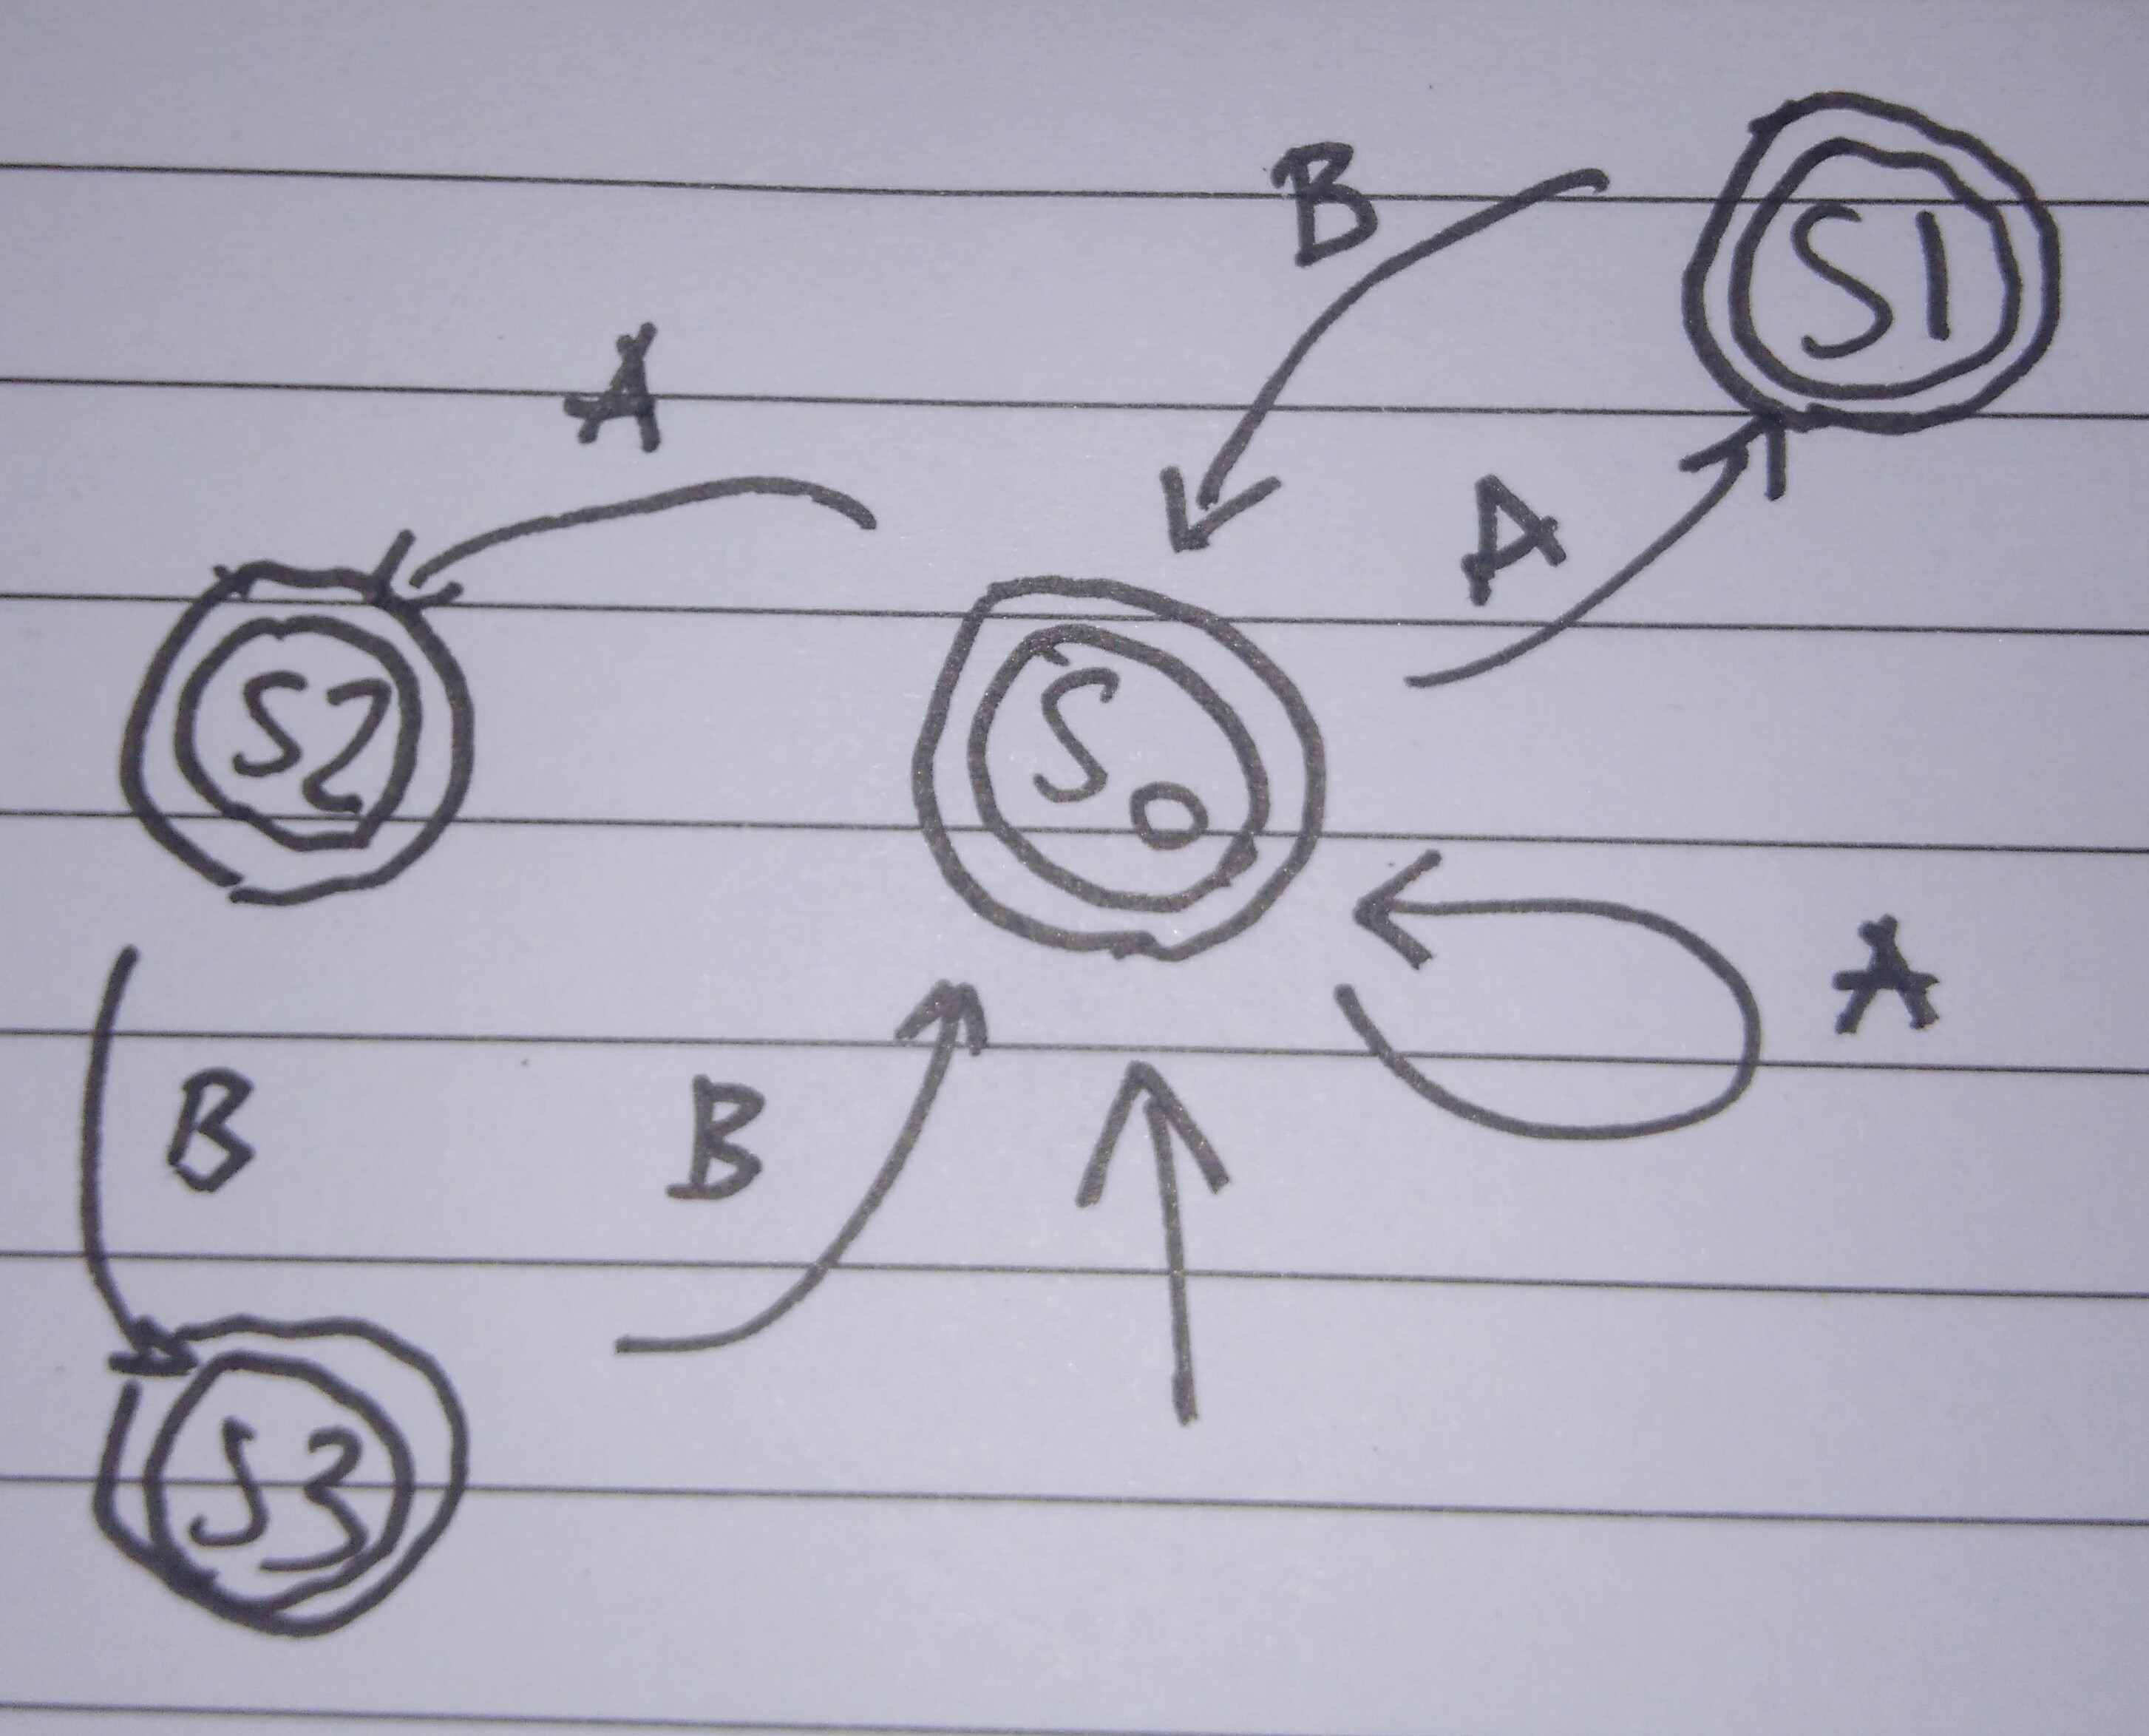 B
S1
A
A
S2
S0
A
B
B
S3